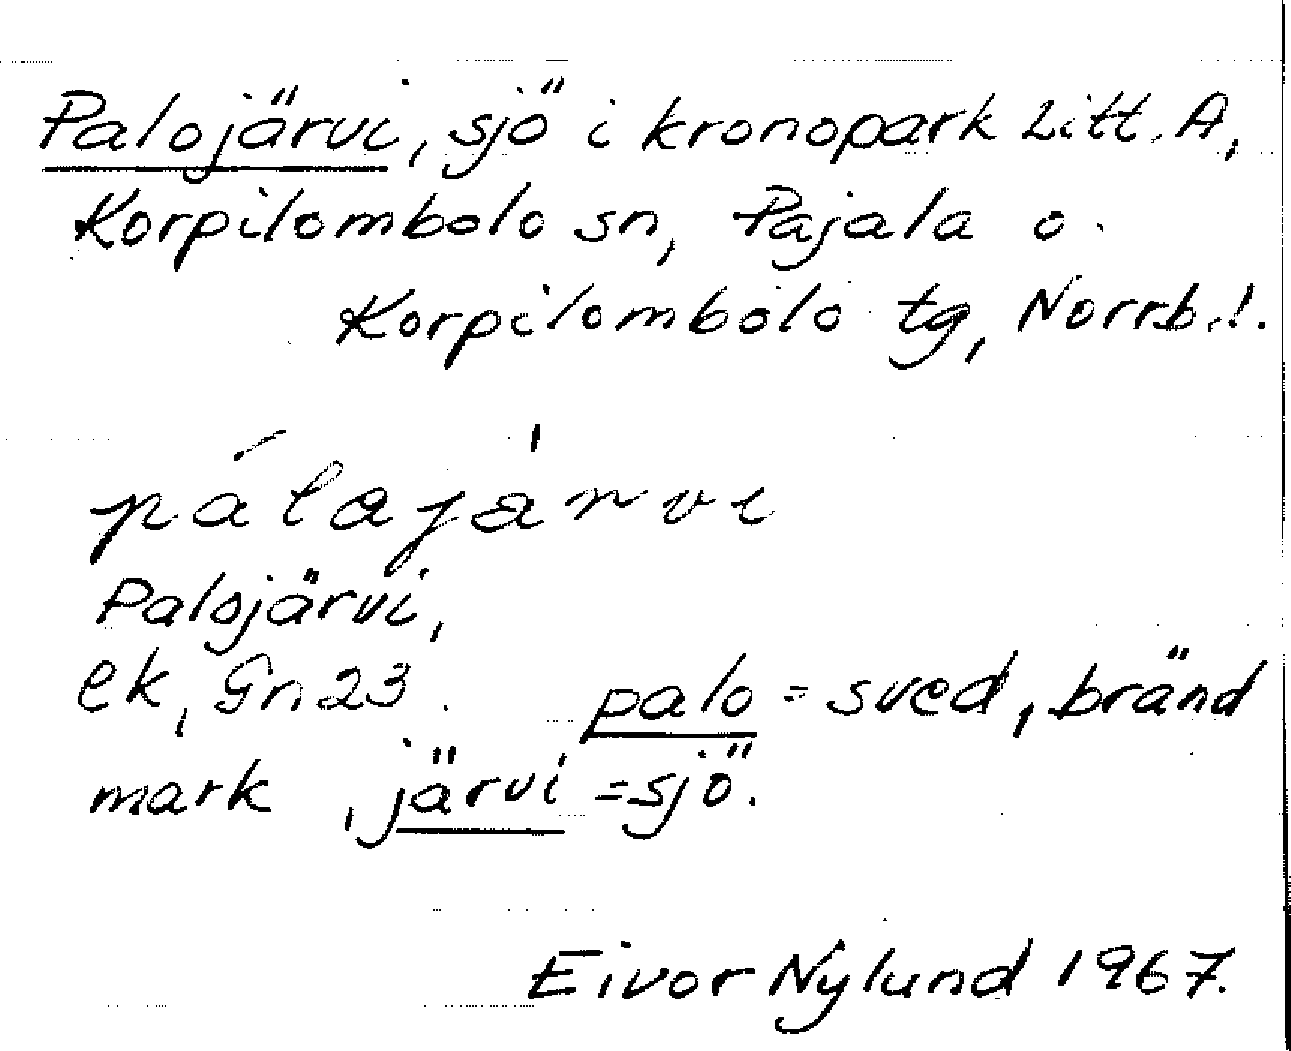 Palojärvi, sjö i kronopark Litt. A,
Korpilombolo sn, Pajala o.
Korpilombolo tg, Norrb.l.
pálajárvi
Palojärvi,
ek, Gn23. palo = sved, bränd
mark, järvi = sjö.
Eivor Nylund 1967.